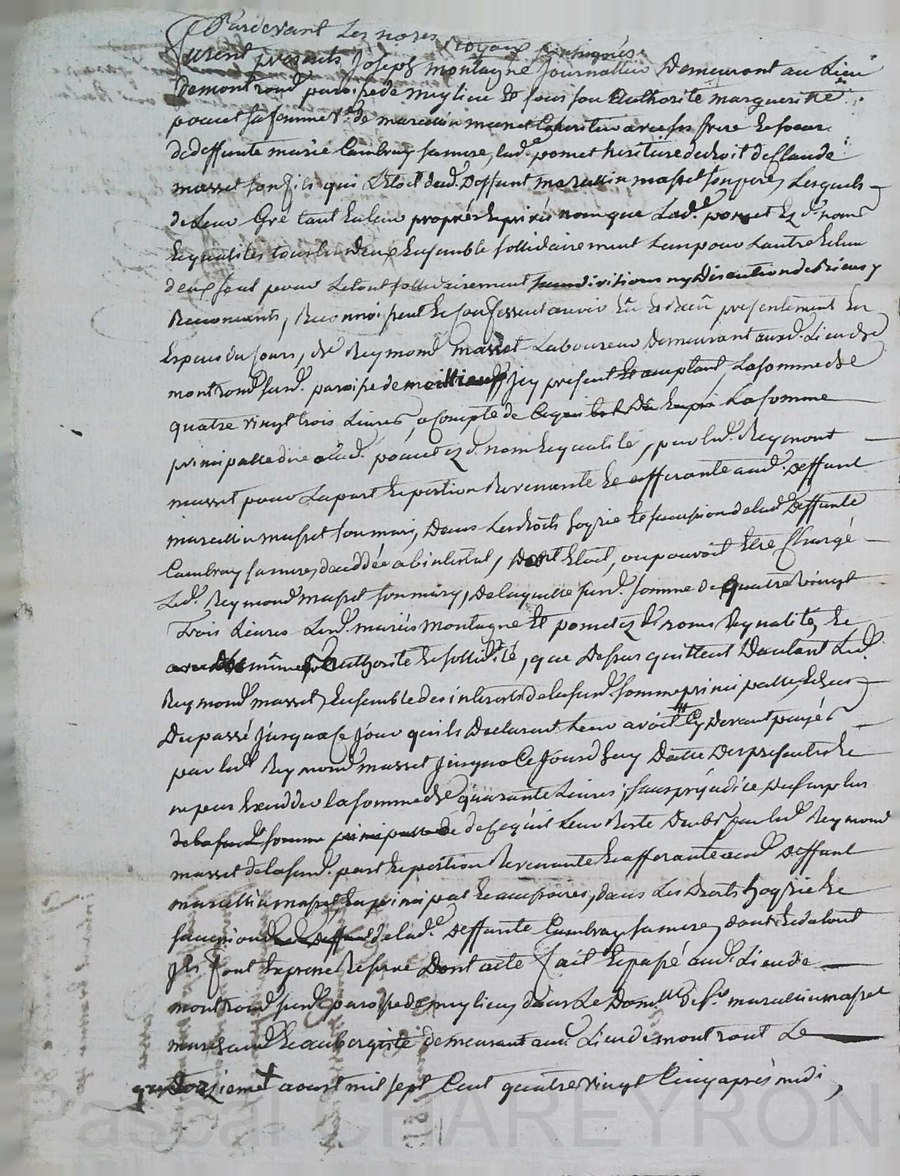 Pardevant Les nores Royaux soussignés
furent presents Joseph montagne Journallier Demeurant au Lieu
Demontrond paroisse de meylieu Et sous son Authorité margueritte
pomet sa femme v.e de marcellin masset heritier avec ses frere Et soeur
de deffunte marie Cambray sa mere, lad.e pomet heritiere de droit de Claude
masset son fils qui L'étoit dud. Deffunt marcellin masset son pere, Lesquels
de Leur Gré tant En leur propre Et privé nom que Lad.e pomet Ez d. noms
Et qualites tous les Deux Ensemble sollidairement Lun pour Lautre Et lun
deux seul pour Le tout sollidairement sans divition ny Discution de Biens y
Renonceants, Reconnoissent Et Confessent avoir Eû Et Recû presentement En
Especes du Cours, de Reymond masset Laboureur Demeurant aud. Lieu de
montrond sus.d paroisse de meillieu Icy present Et acceptant, La somme de
quatre vingt trois Livres, a Compte de Ce qui Est Dû La somme
principalle dûe a lad. pomet ez d. nom Et qualité, par led. Reymont
masset pour La part Et portion Revenante Et afferante aud. Deffunt
marcellin masset son mari, Dans Les droits hoyrie Et sucession de lad. Deffunte
Cambray sa mere, décédée abintestat, Dont Etoit, ou pouvoit Etre Chargé
Led. Reymond masset son mary, De laquelle sus.d somme de quatre vingt
Trois Livres Les d. mariés montagne Et pomet ez d. noms Et qualités Et
même Authorité Et sollidité, que Dessus quittent D'autant Led.
Reymond masset, Ensemble des interets de la sus.d somme principalle Echus
Du passé Jusqua Ce Jour quils Declarent Leur avoir Eté Cy Devant payés
par led. Reymond masset Jusqua Ce Jourdhuy Datte Des presentes Et
Exceder la somme de quarante Livres, sans préjudice Du surplus
de la sus.d somme principalle de Ce qui Leur Reste Du par led. Reymond
masset de la sus.d part Et portion Revenante Et afferante aud. Deffunt
marcellin masset En principal Et accessoires, dans Les Droits hoyrie Et
sucession de lad.e Deffunte Cambray sa mere, dont Et du tout
Ils font Expresse Reserve Dont acte fait Et passé aud. Lieu de
montrond sus.d paroisse de meylieu, dans Le Dom.lle de s.r marcellin masset
marchand Et aubergiste demeurant aud. Lieu de montrond Le
quatorzieme aoust mil sept Cent quatre vingt Cinq après midi,
Pascal CHAREYRON